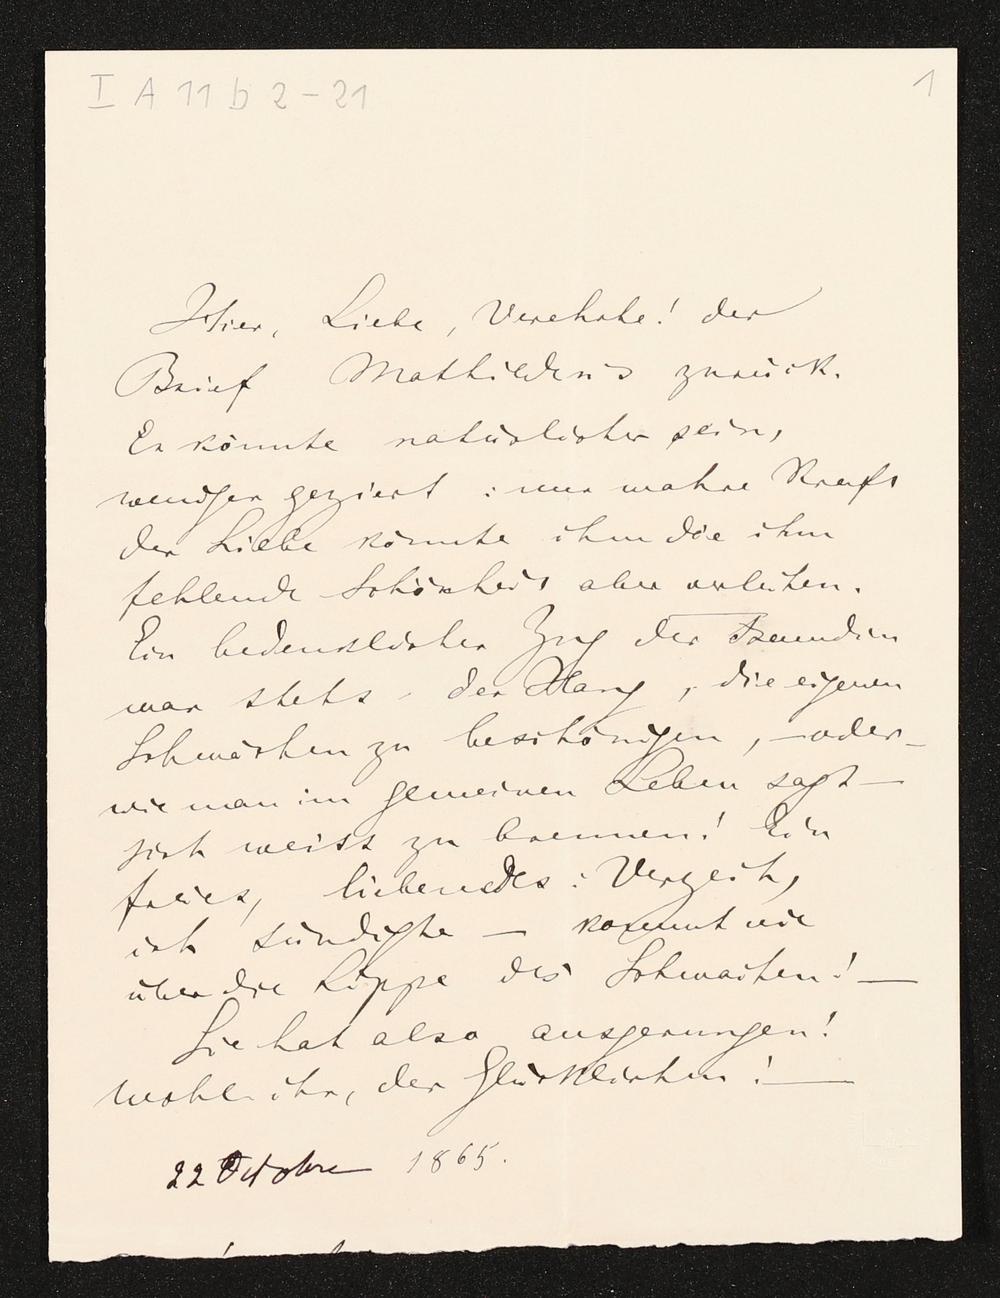 I A 11 b 2-21
1
Hier, Liebe, Verehrte! der
Brief Mathildens zurück.
Er könnte natürlicher sein,
weniger geziert: nur wahre Kraft
der Liebe könnte ihm die ihm
fehlende Schönheit aber verleihen.
Ein bedenklicher Zug der Freundin
war stets, der Hang, die eigenen
Schwächen zu beschönigen, – oder –
wie man im gemeinen Leben sagt –
sich weiss zu brennen! Ein
freies, liebendes: Verzeih,
ich sündigte – kommt nie
über die Lippe des Schwachen! –
Sie hat also ausgerungen!
wohl ihr, der Glücklichen! –
22 Octobre 1865.